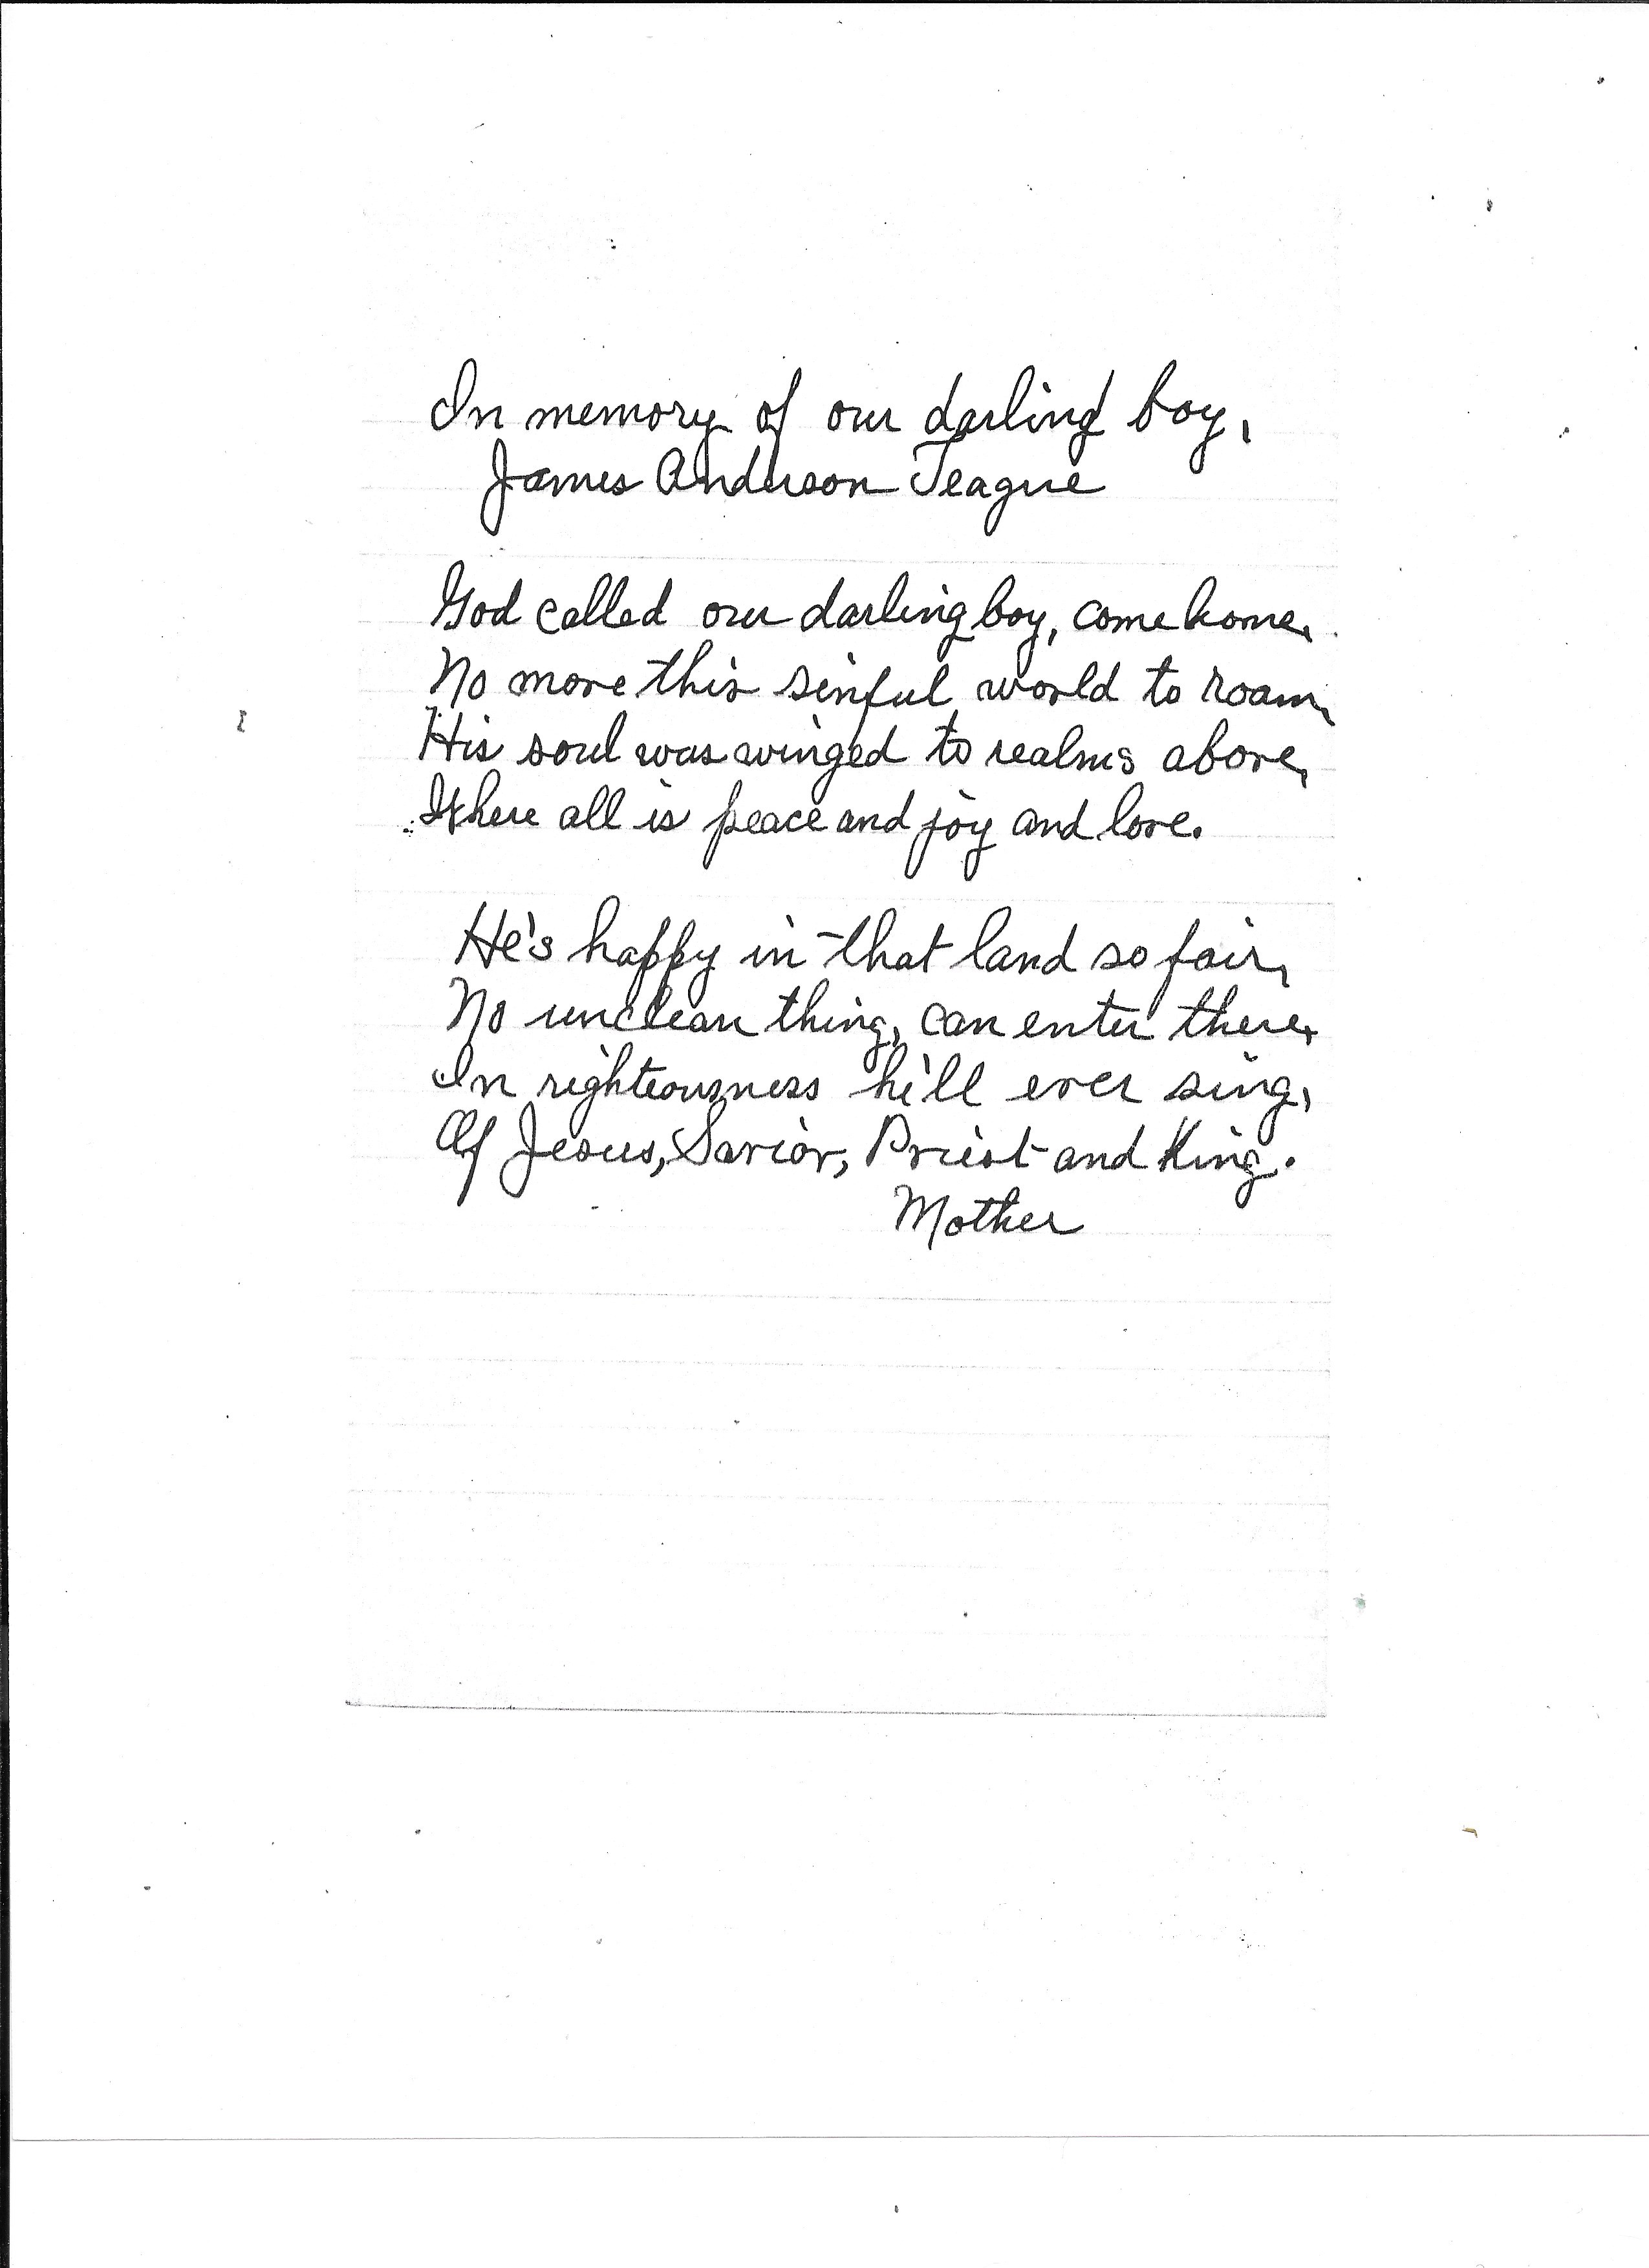 In memory of our darling boy,
James Anderson Teague
God called our darling boy, come home,
No more this sinful world to roam,
His soul was winged to realms above,
Where all is peace and joy and love.
He's happy in that land so fair,
No unclean thing, can enter there,
In righteousness he'll ever sing,
Of Jesus, Savior, Priest and King.
Mother